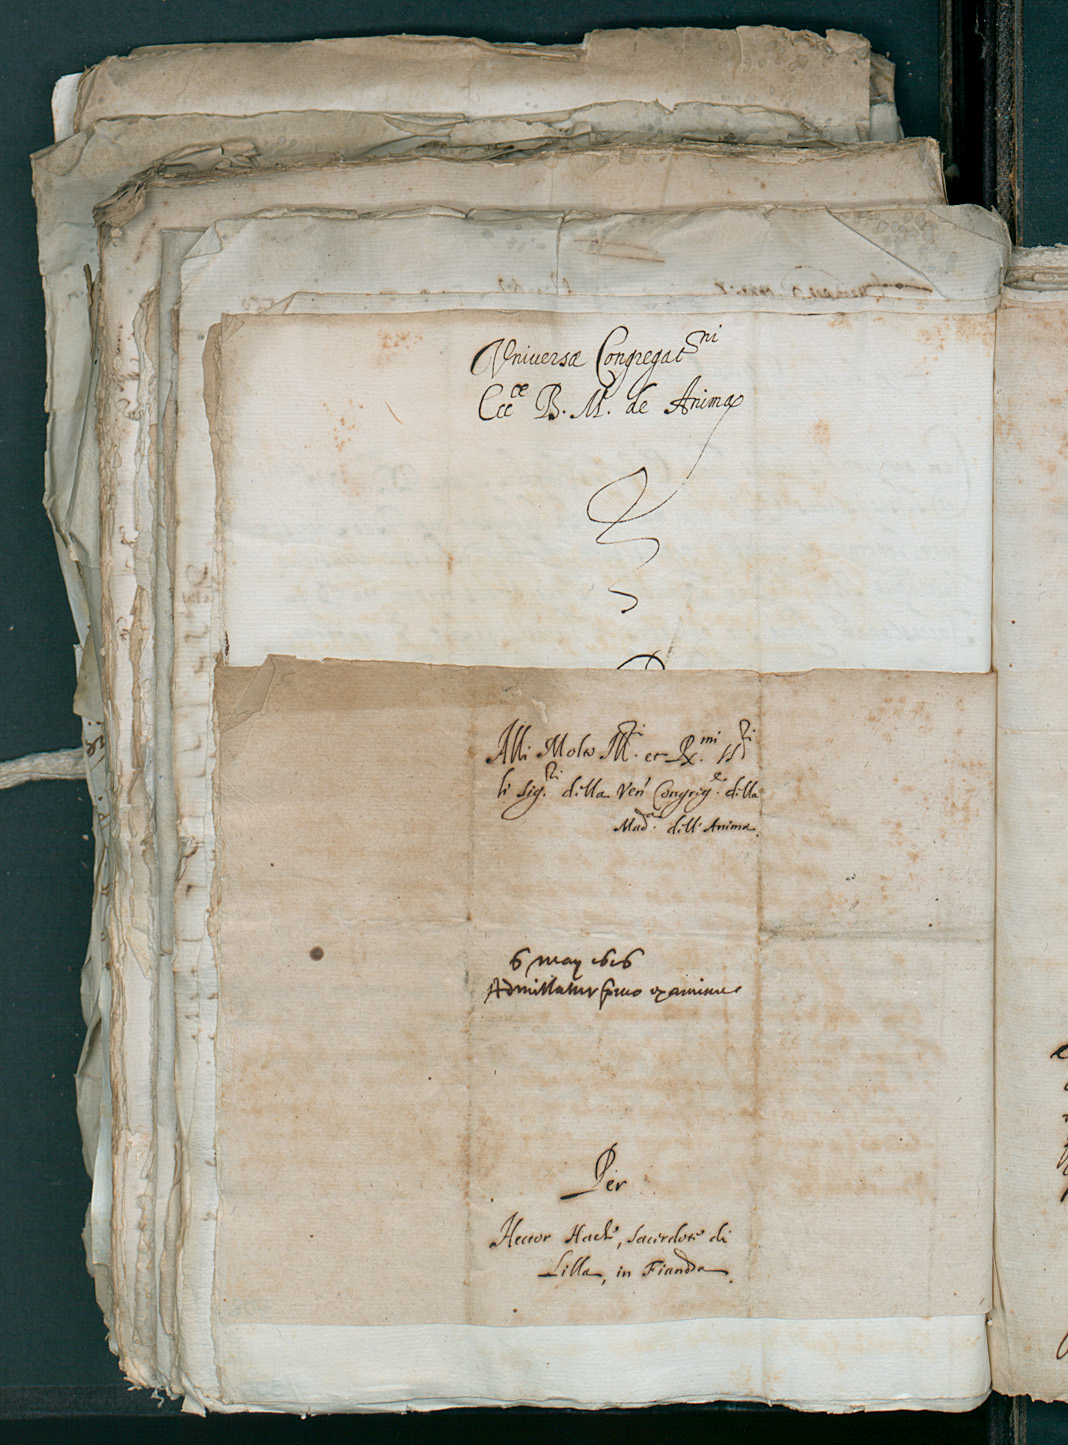 Vniuersæ Congregat.ni
Ecc.æ B. M. de Anima
Alli Molto Ill.ri et R.mi SS.ri
li Sig.ri della Ven. Congreg.e della
Mad.a dell' Anima.
6 may 1616
Admittatur seruo examine
Per
Hector Hacke, Sacerdote di
Lilla, in Fiandra.